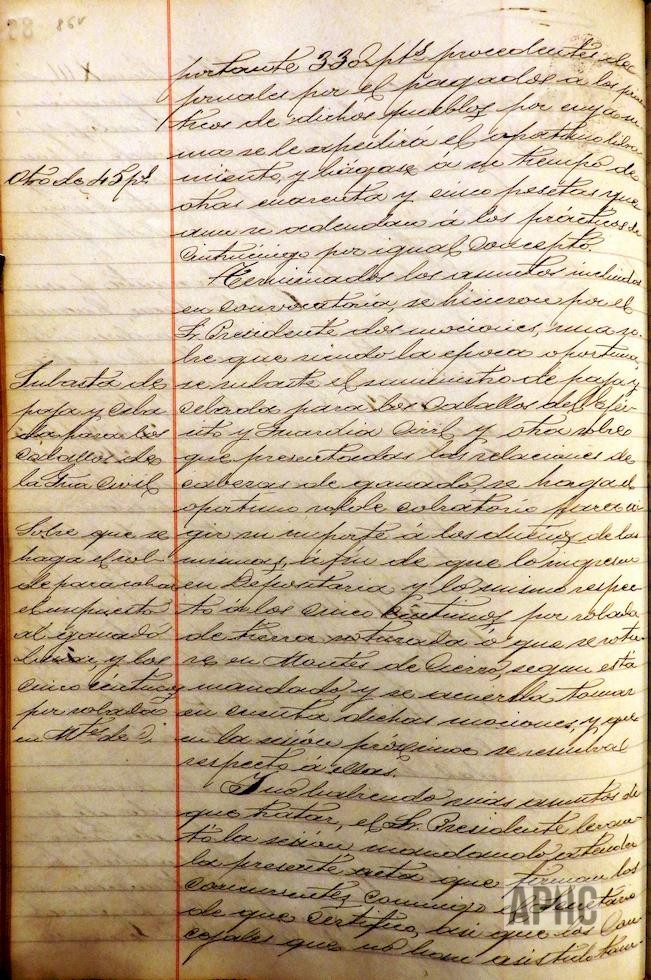 86v
portante 332 pts procedentes de
jornales por el pagados a los prac
ticos de dichos pueblos por cuya su
ma se le expedirá el oportuno libra
miento, y hágase a su tiempo de
Otro de 45 pts
otras cuarenta y cinco pesetas que
aun se adeudan á los prácticos de
Cintruénigo por igual concepto.
Terminados los asuntos incluidos
en convocatoria, se hicieron por el
Sr. Presidente dos mociones, una so-
bre que siendo la época oportuna,
Subasta de
paja y ceba
da para los
caballos de
la Gua Civil
se subaste el suministro de paja y
cebada para los caballos del Ejér-
cito y Guardia Civil y otra sobre
que presentadas las relaciones de
cabezas de ganado, se haga el
oportuno rolde cobratorio para
Sobre que se
haga el rol-
de para cobrar
el impuesto
al ganado
y los
cinco céntimos
por robada
en Mtes de C.
gir su importe á los dueños de las
mismas, á fin de que lo ingresen
en Depositaria y lo mismo respec-
to á los cinco céntimos por robada
de tierra roturada ó que se rotu-
re en Montes de Cierzo, segun está
mandado y se acuerda tomar
en cuenta dichas mociones, y que
en la sesión próxima se resuelva
respecto á ellas.
Y no habiendo más asuntos de
que tratar, el Sr. Presidente levan-
tó la sesión mandando extender
la presente acta que firman los
concurrentes conmigo el Secretario
de que certifico, asi que los Con-
cejales que no han asistido
APHC